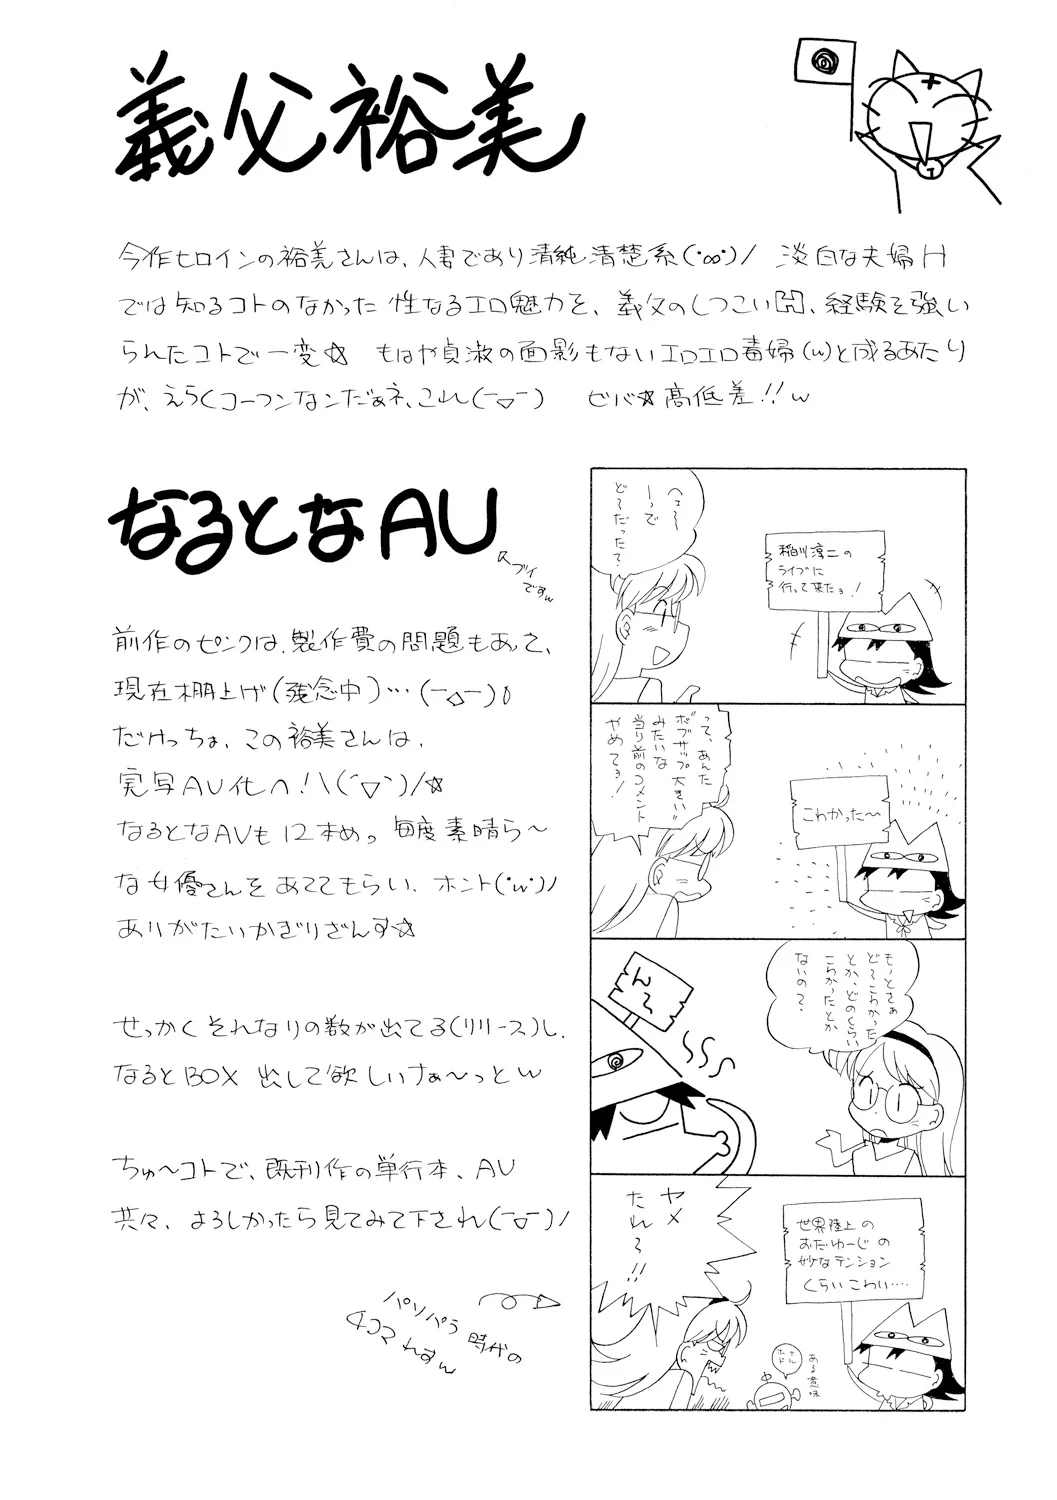 義父裕美
今作ヒロインの裕美さんは、人妻であり清純清楚系(・∞・)/ 淡白な夫婦H
では知るコトのなかった 性なるエロ魅力を、義父のしつこい 、経験を強い
られたコトで一変☆ もはや貞淑の面影もないエロエロ毒婦(w)と成るあたり
が、えらくコーフンなンだぁネ、これ(ー▽ー) ビバ☆高低差!!w
なるとなAV
スプイですw
前作のピンクは、製作費の問題もあって、
現在棚上げ(残念中)…(ー△ー)0
だけっちょ、この裕美さんは、
実写AV化へ!\(´▽`)/☆
なるとなAVも12本めっ 毎度素晴ら〜
な女優さんをあててもらい、ホント(・w・)/
ありがたいかぎりざんす☆
せっかくそれなりの数が出てる(リリース)し、
なるとBOX 出して欲しいけぁ〜っとw
ちゅ〜コトで、既刊作の単行本、AV
共々、よろしかったら見てみて下され(ー▽ー)/
パソパラ時代の
4コマ れすw
へェ〜
ーっで
ど〜だった?
稲川淳二の
ライブに
行って来たョ!
って、あんた
ボブサップ大きい
みたいな
当り前のコメント
やめてョ!
こわかった〜
もっとさぁ
ど〜こわかった
とか、どのくらい
こわかったとか
ないの?
ん〜
ヤメ
たれ〜!!
世界陸上の
おだゆーじの
妙なテンション
くらいこわい……
ある意味